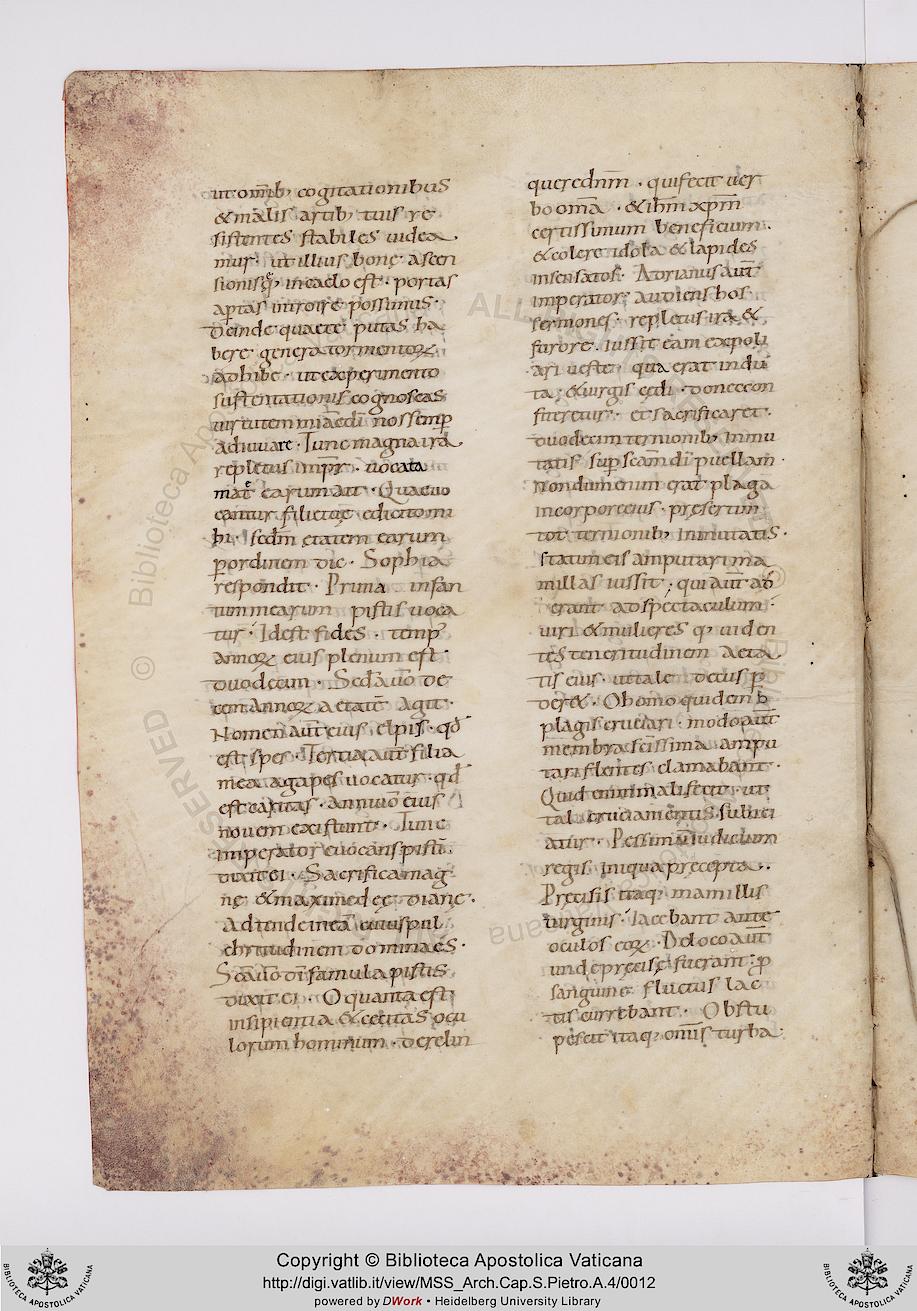 ut om̄ib; cogitationibus
& malis artib; tuis re
sistentes stabiles uidea
mur. ut illius bonę ascen
sionis q̨ in caelo est. portas
aptas introire possimus.
Deinde quaere putas ha
bere genera tormentoꝝ.
adhibe. ut experimento
sustentationis cognoscas
uirtutem mi
adiuuare. Tunc magna ira
repletus imp̄r. uocata
mat̄ earum ait. Quae uo
cantur filię tuę edicito mi
hi. scd̄m etatem earum
p ordinem dic. Sophia
respondit. Prima infan
tum mearum pistis uoca
tur. Idest fides. temp'
annoꝝ eius plenum est.
duodecim. Scd̄a uō de
cem annoꝝ aetatē agit.
Nomen aūt eius elpis. qđ
est spes. Tertia aūt filia
mea agapes uocatur. qđ
est caritas. anni uō eius
nouem existunt. Tunc
imperator euocans pistī.
dixit ei. Sacrifica mag
nę & maximę deę dianę.
Adtende in eā cuius pul
chritudinem domina es.
Scā uō dī famula pistis
dixit ei. O quanta est
insipientia & cecitas ocu
lorum hominum. derelin
quere dn̄m. qui fecit uer
bo om̄a. & ih̄m xp̄m
certissimum beneficium.
& colere idola & lapides
insensatos. Adrianus aūt
imperator. audiens hos
sermones. repletus ira &
furore. iussit eam expoli
ari ueste. qua erat indu
ta. & uirgis cędi. donec con
fiteretur. et sacrificaret.
duodecim ternionib; inmu
tatis sup scam dī puellam.
Nondum enim erat plaga
in corpore eius. pręsertim
tot ternionib; inmutatis.
statim eis amputari ma
millas iussit. qui aūt ad
erant ad spectaculum.
uiri & mulieres q; uiden
tes teneritudinem aeta
tis eius. uel tale decus p
dere. Ob omo quidem
plagis cruciari. modo aūt
membra scissima ampu
tari flentes clamabant.
Quid enim mali fecit. ut
tal cruciamentis subici
atur. Pessimū iudicium
regis. iniqua precepta.
Precisis itaq; mamillis
uirginis. iacebant ante
oculos eoꝝ. De loco aūt
unde precisę fuerant. p
sanguine fluctus lac
tis currebant. Obstu
pescit itaq; om̄is turba
Copyright © Biblioteca Apostolica Vaticana
http://digi.vatlib.it/view/MSS_Arch.Cap.S.Pietro.A.4/0012
powered by DWork • Heidelberg University Library
BIBLIOTECA APOSTOLICA VATICANA
BIBLIOTECA APOSTOLICA VATICANA